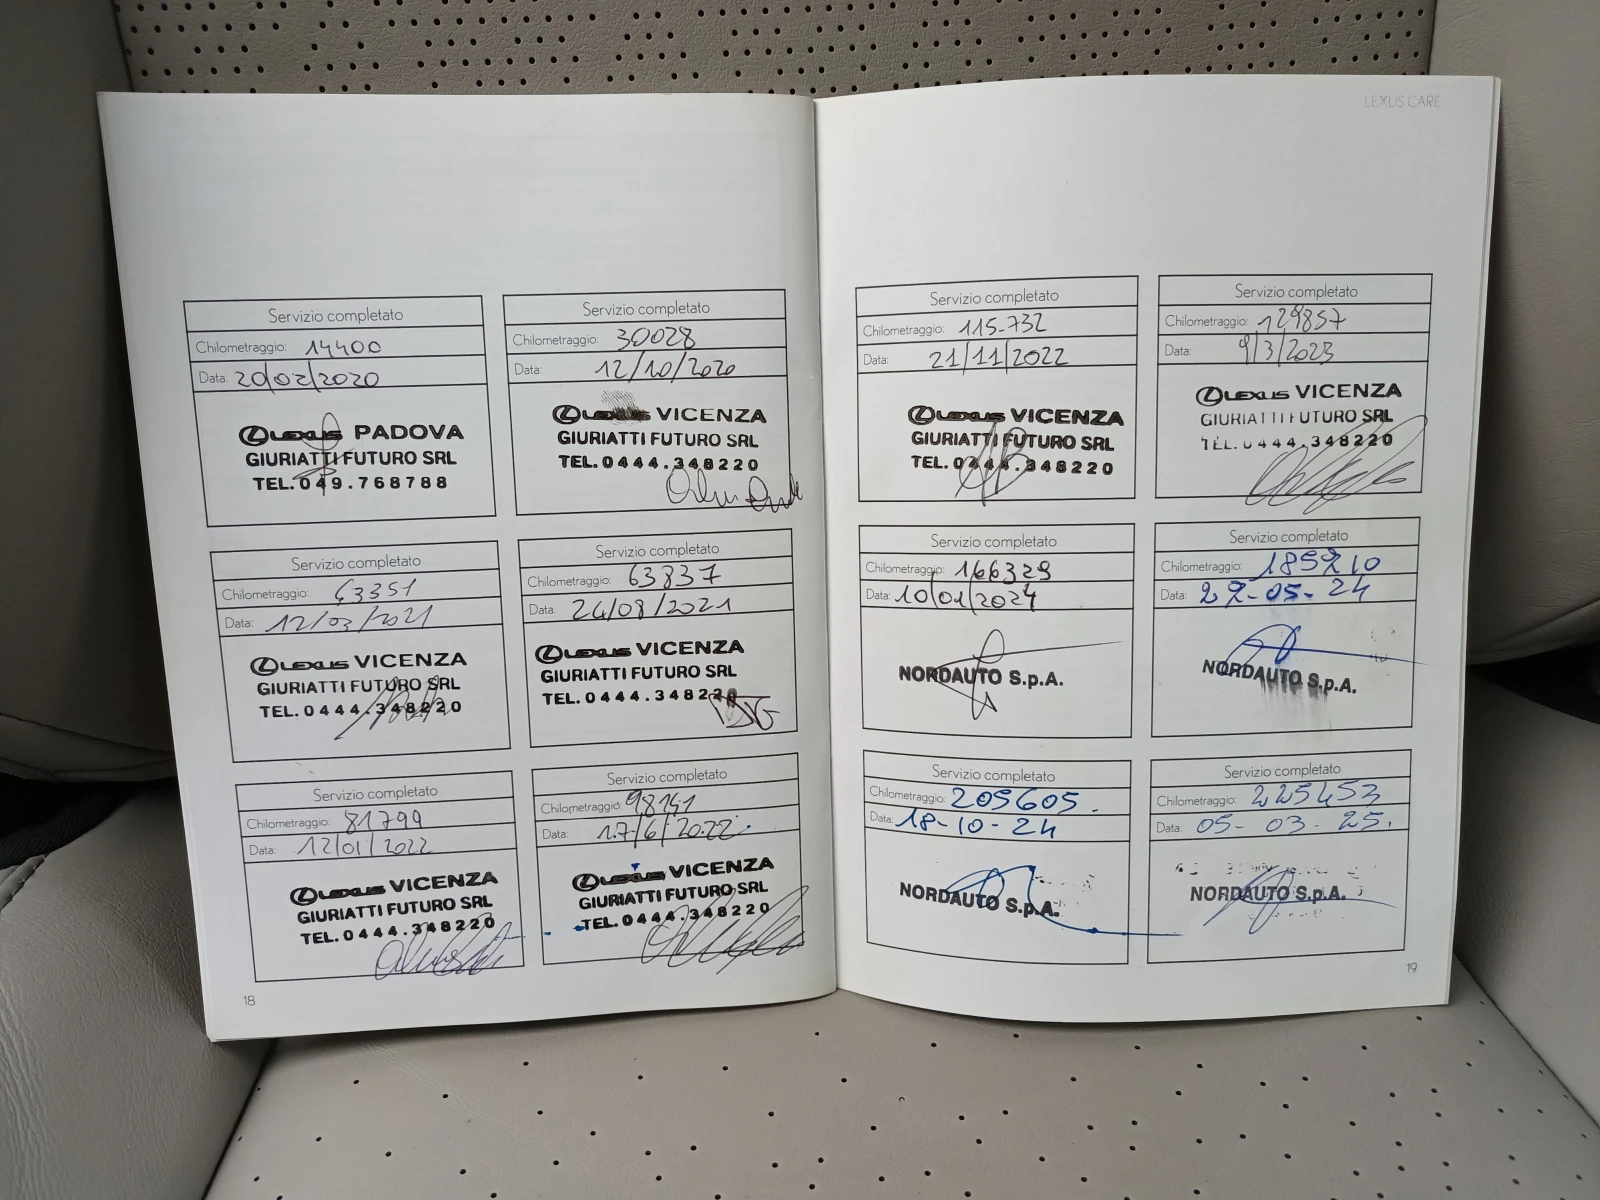 LEXUS CARE
Servizio completato
Chilometraggio: 14400
Data: 20/02/2020
LEXUS PADOVA
GIURIATTI FUTURO SRL
TEL. 049.768788
Servizio completato
Chilometraggio: 30028
Data: 12/10/2020
LEXUS VICENZA
GIURIATTI FUTURO SRL
TEL. 0444.348220
Servizio completato
Chilometraggio: 43351
Data: 12/03/2021
LEXUS VICENZA
GIURIATTI FUTURO SRL
TEL. 0444.348220
Servizio completato
Chilometraggio: 63837
Data: 24/08/2021
LEXUS VICENZA
GIURIATTI FUTURO SRL
TEL. 0444.348220
Servizio completato
Chilometraggio: 81799
Data: 12/01/2022
LEXUS VICENZA
GIURIATTI FUTURO SRL
TEL. 0444.348220
Servizio completato
Chilometraggio: 98141
Data: 17/6/2022
LEXUS VICENZA
GIURIATTI FUTURO SRL
TEL. 0444.348220
18
Servizio completato
Chilometraggio: 115.732
Data: 21/11/2022
LEXUS VICENZA
GIURIATTI FUTURO SRL
TEL. 0444.348220
Servizio completato
Chilometraggio: 129857
Data: 9/3/2023
LEXUS VICENZA
GIURIATTI FUTURO SRL
TEL. 0444.348220
Servizio completato
Chilometraggio: 166329
Data: 10/01/2024
NORDAUTO S.p.A.
Servizio completato
Chilometraggio:
Data:
NORDAUTO S.p.A.
Servizio completato
Chilometraggio: 205605.
Data: 18-10-24
NORDAUTO S.p.A.
Servizio completato
Chilometraggio: 225453
Data: 05-03-25.
NORDAUTO S.p.A.
19